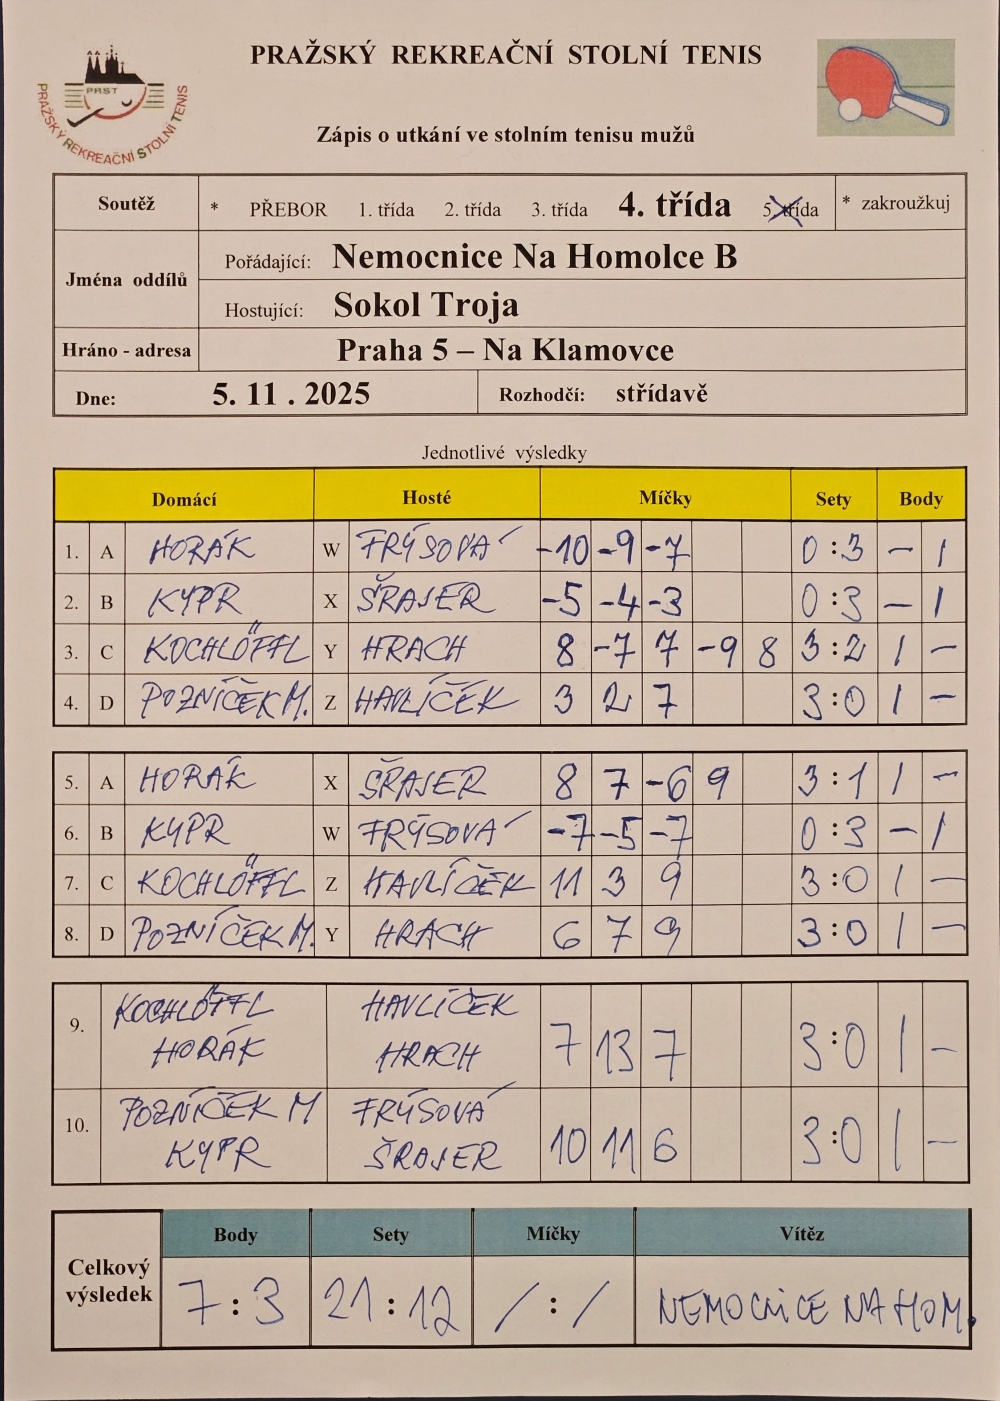 PRAŽSKÝ REKREAČNÍ STOLNÍ TENIS
PRST
PRAŽSKÝ REKREAČNÍ STOLNÍ TENIS
Zápis o utkání ve stolním tenisu mužů
Soutěž * PŘEBOR 1. třída 2. třída 3. třída 4. třída 5. třída * zakroužkuj
Jména oddílů
Pořádající: Nemocnice Na Homolce B
Hostující: Sokol Troja
Hráno - adresa Praha 5 – Na Klamovce
Dne: 5. 11 . 2025 Rozhodčí: střídavě
Jednotlivé výsledky
Domácí Hosté Míčky Sety Body
1. A HORÁK W FRÝSOVÁ -10 -9 -7 0:3 - 1
2. B KYPR X ŠRAJER -5 -4 -3 0:3 - 1
3. C KOCHLÖFFL Y HRACH 8 -7 7 -9 8 3:2 1 -
4. D POZNÍČEK M. Z HAVLÍČEK 3 2 7 3:0 1 -
5. A HORÁK X ŠRAJER 8 7 -6 9 3:1 1 -
6. B KYPR W FRÝSOVÁ -7 -5 -7 0:3 - 1
7. C KOCHLÖFFL Z HAVLÍČEK 11 3 9 3:0 1 -
8. D POZNÍČEK M. Y HRACH 6 7 9 3:0 1 -
KOCHLÖFFL HAVLÍČEK
9. HORÁK HRACH 7 13 7 3:0 1 -
POZNÍČEK M FRÝSOVÁ
10. KYPR ŠRAJER 10 11 6 3:0 1 -
Body Sety Míčky Vítěz
Celkový výsledek 7:3 21:12 / : / NEMOCNICE NA HOM.